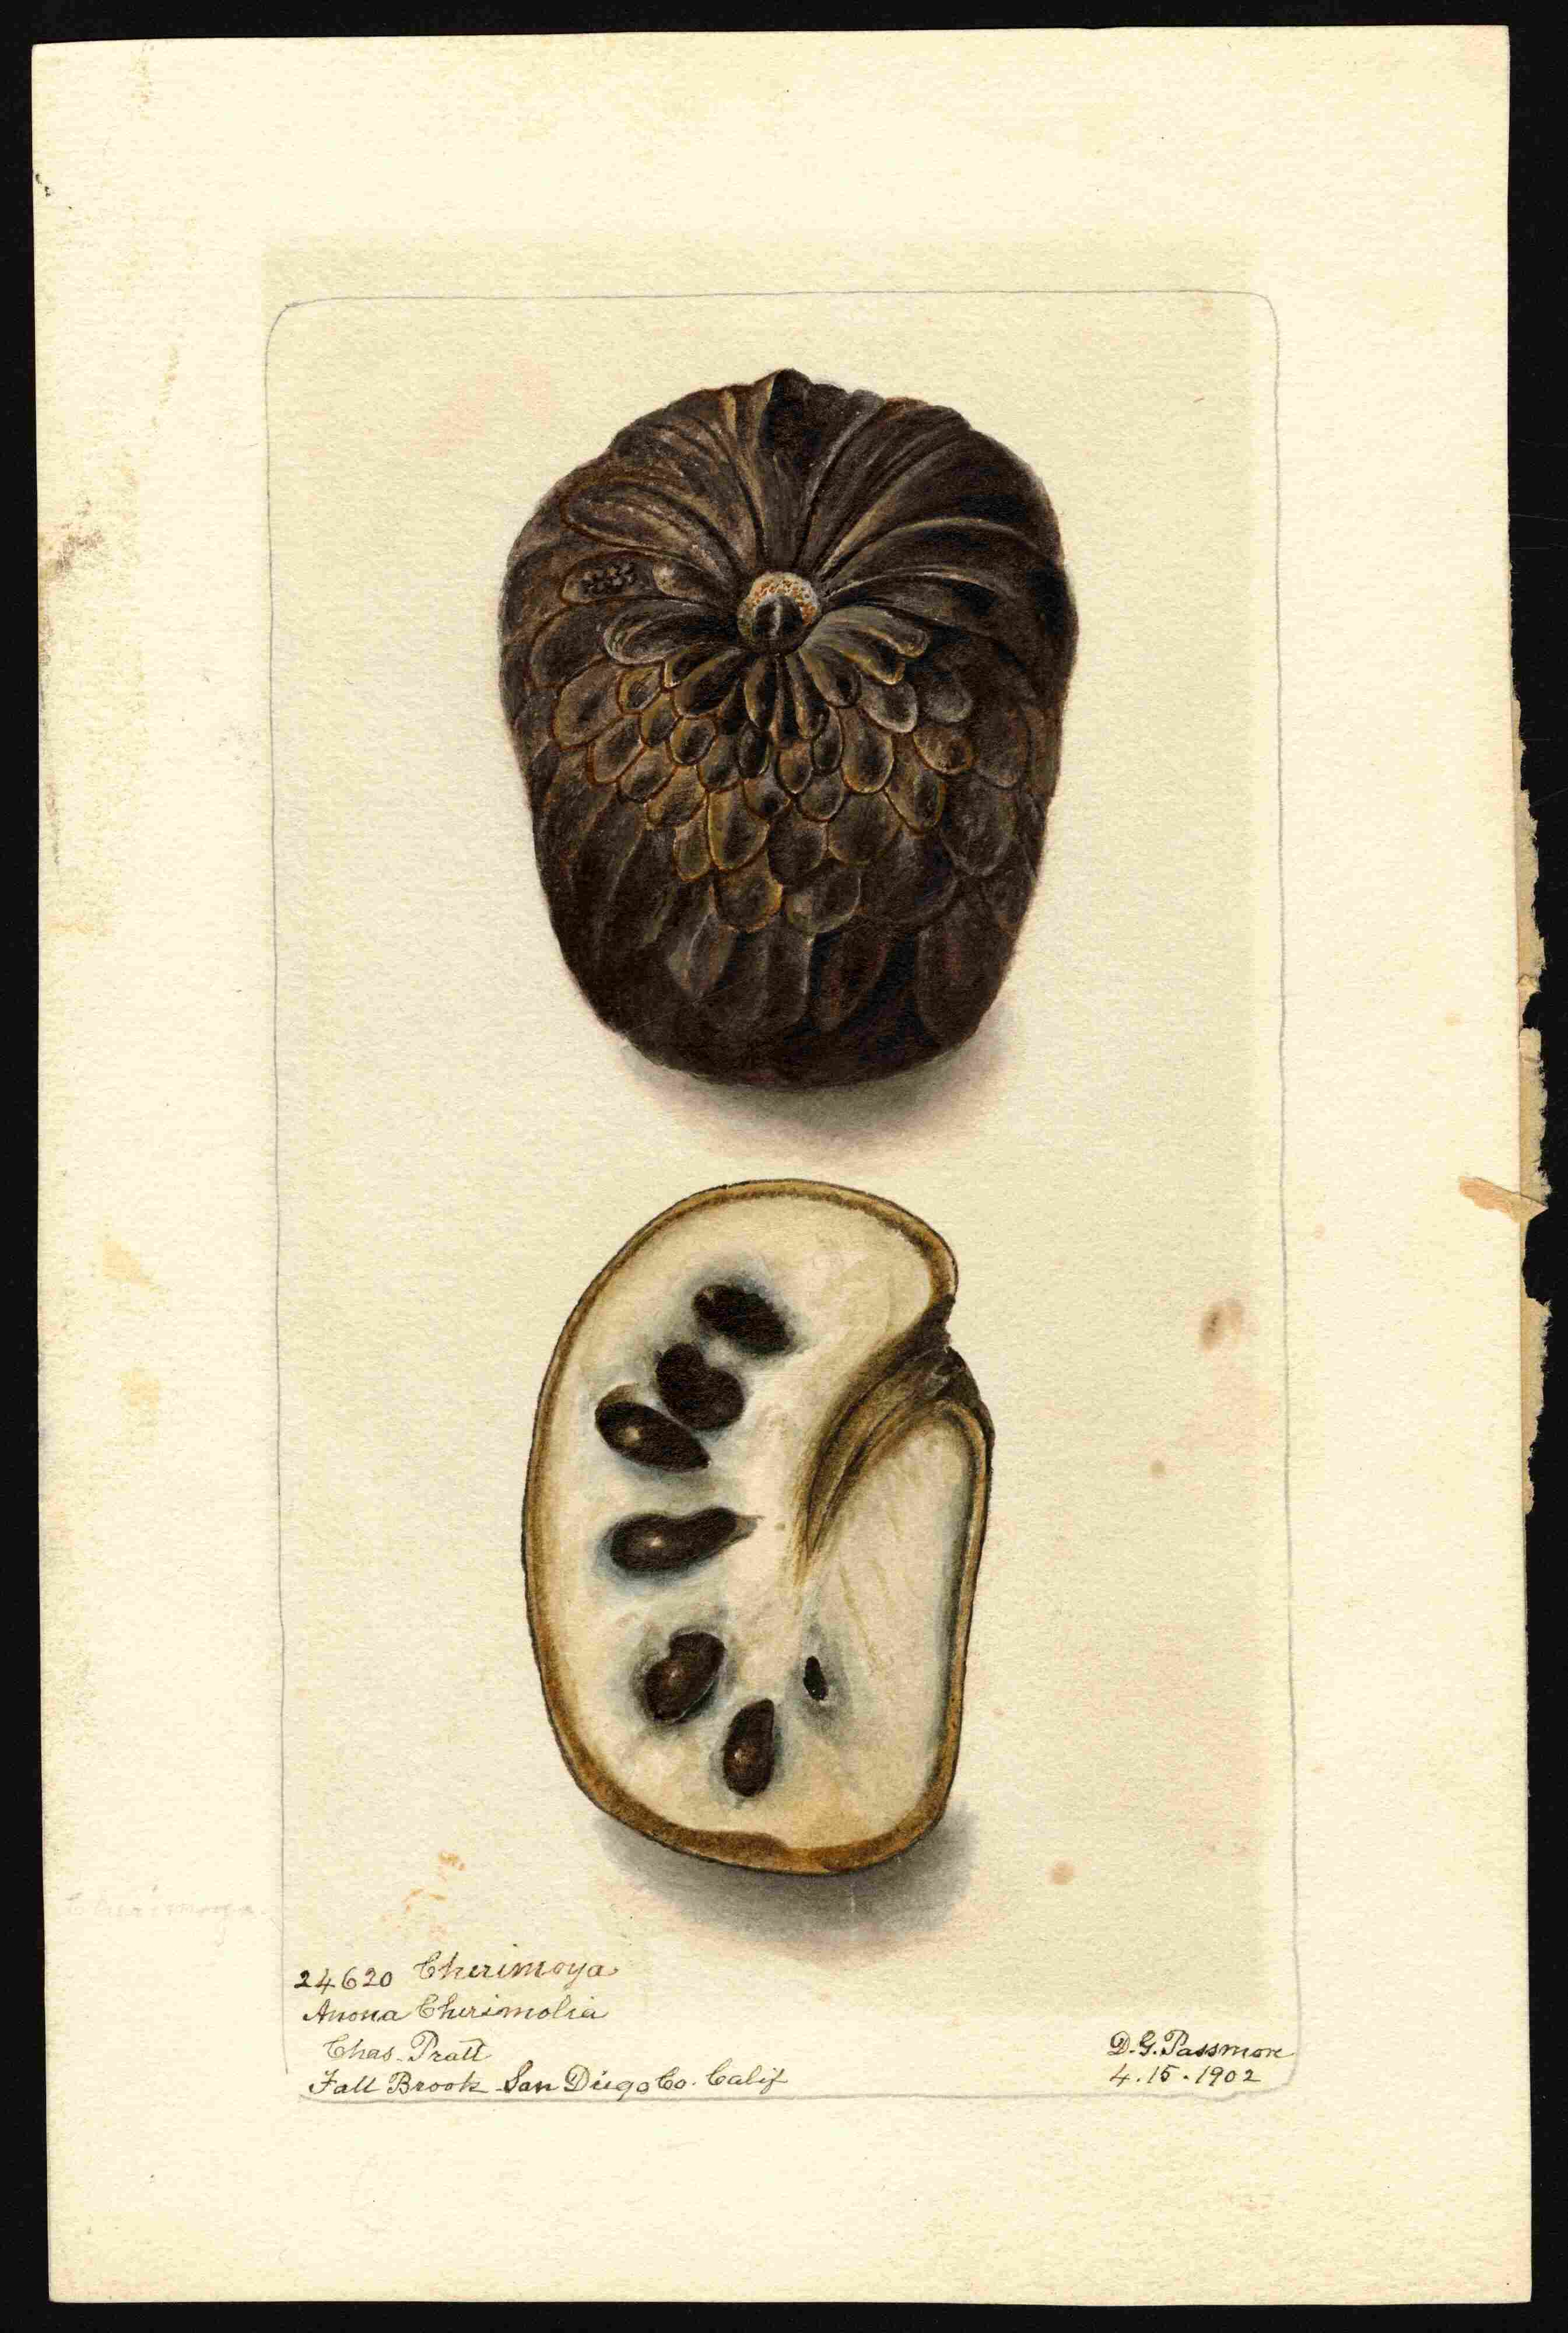 Cherimoya
24620 Cherimoya
Anona Cherimolia
Chas. Pratt
Fall Brook San Diego Co. Calif
D. G. Passmore
4.15.1902